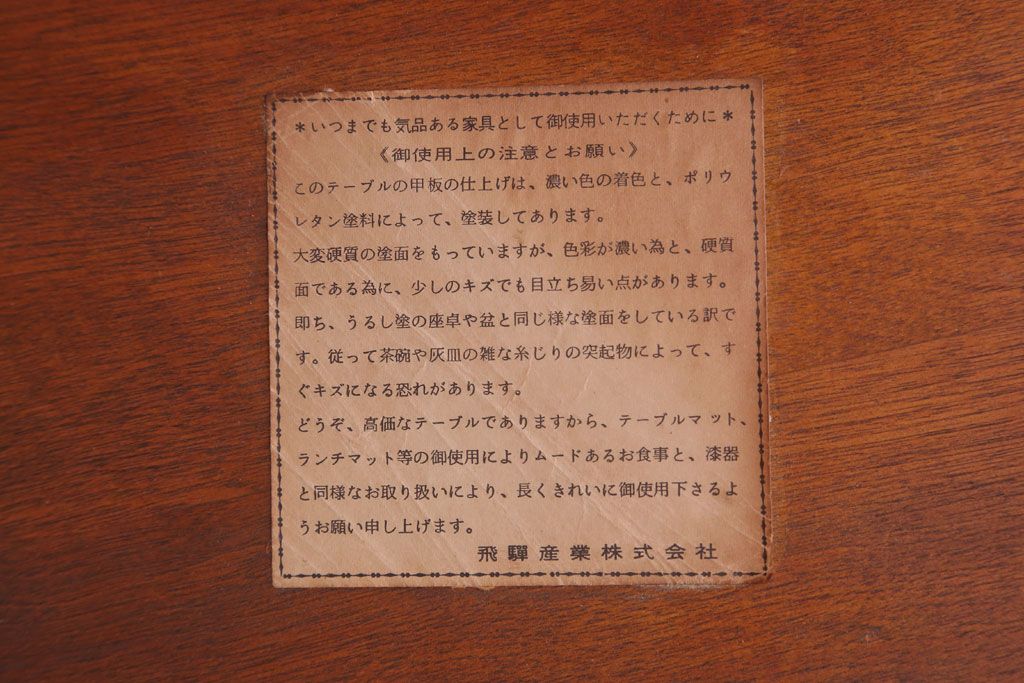 ＊いつまでも気品ある家具として御使用いただくために＊
《御使用上の注意とお願い》
このテーブルの甲板の仕上げは、濃い色の着色と、ポリウ
レタン塗料によって、塗装してあります。
大変硬質の塗面をもっていますが、色彩が濃い為と、硬質
面である為に、少しのキズでも目立ち易い点があります。
即ち、うるし塗の座卓や盆と同じ様な塗面をしている訳で
す。従って茶碗や灰皿の雑な糸じりの突起物によって、す
ぐキズになる恐れがあります。
どうぞ、高価なテーブルでありますから、テーブルマット、
ランチマット等の御使用によりムードあるお食事と、漆器
と同様なお取り扱いにより、長くきれいに御使用下さるよ
うお願い申し上げます。
飛驒産業株式会社